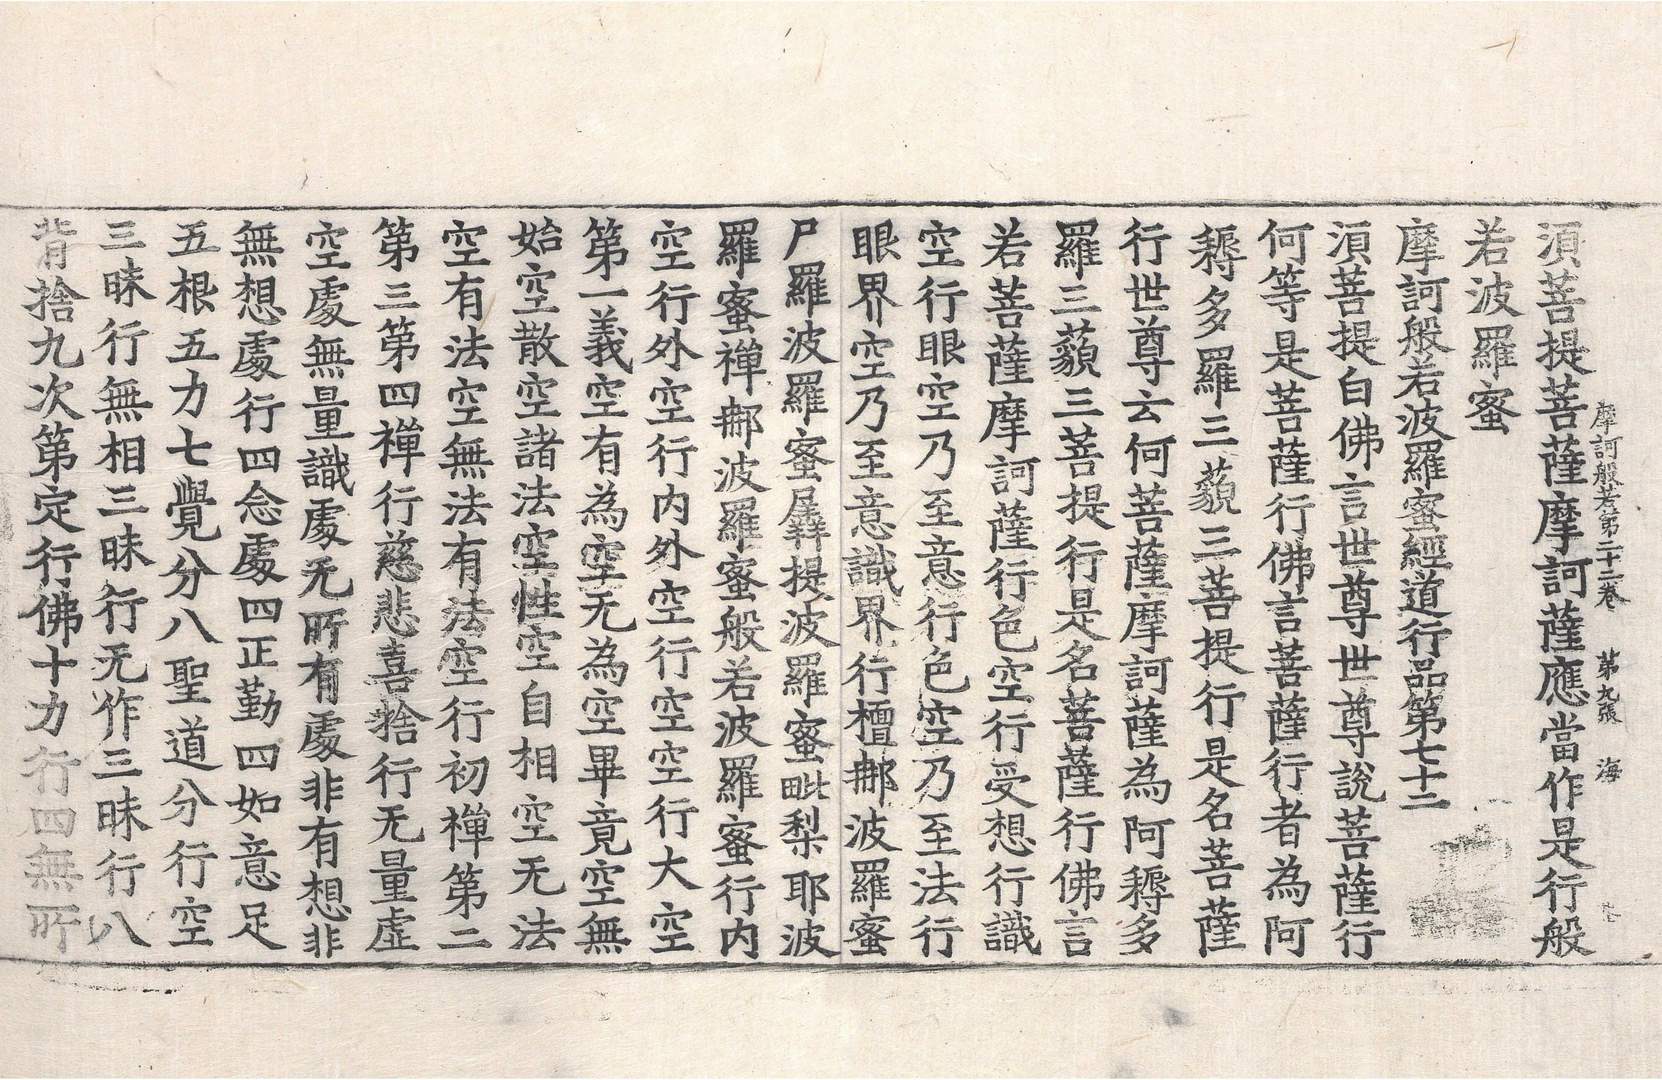 摩訶般若第二十二卷 第九張 海
湏菩提菩薩摩訶薩應當作是行般
若波羅蜜
摩訶般若波羅蜜經道行品第七十二
湏菩提白佛言世尊世尊說菩薩行
何等是菩薩行佛言菩薩行者為阿
耨多羅三藐三菩提行是名菩薩
行世尊云何菩薩摩訶薩為阿耨多
羅三藐三菩提行是名菩薩行佛言
若菩薩摩訶薩行色空行受想行識
空行眼空乃至意行色空乃至法行
眼界空乃至意識界行檀那波羅蜜
尸羅波羅蜜羼提波羅蜜毗梨耶波
羅蜜禪那波羅蜜般若波羅蜜行内
空行外空行内外空行空空行大空
第一義空有為空无為空畢竟空無
始空散空諸法空性空自相空无法
空有法空無法有法空行初禪第二
第三第四禪行慈悲喜捨行无量虛
空處無量識處无所有處非有想非
無想處行四念處四正勤四如意足
五根五力七覺分八聖道分行空
三昧行無相三昧行无作三昧行八
背捨九次第定行佛十力行四無所